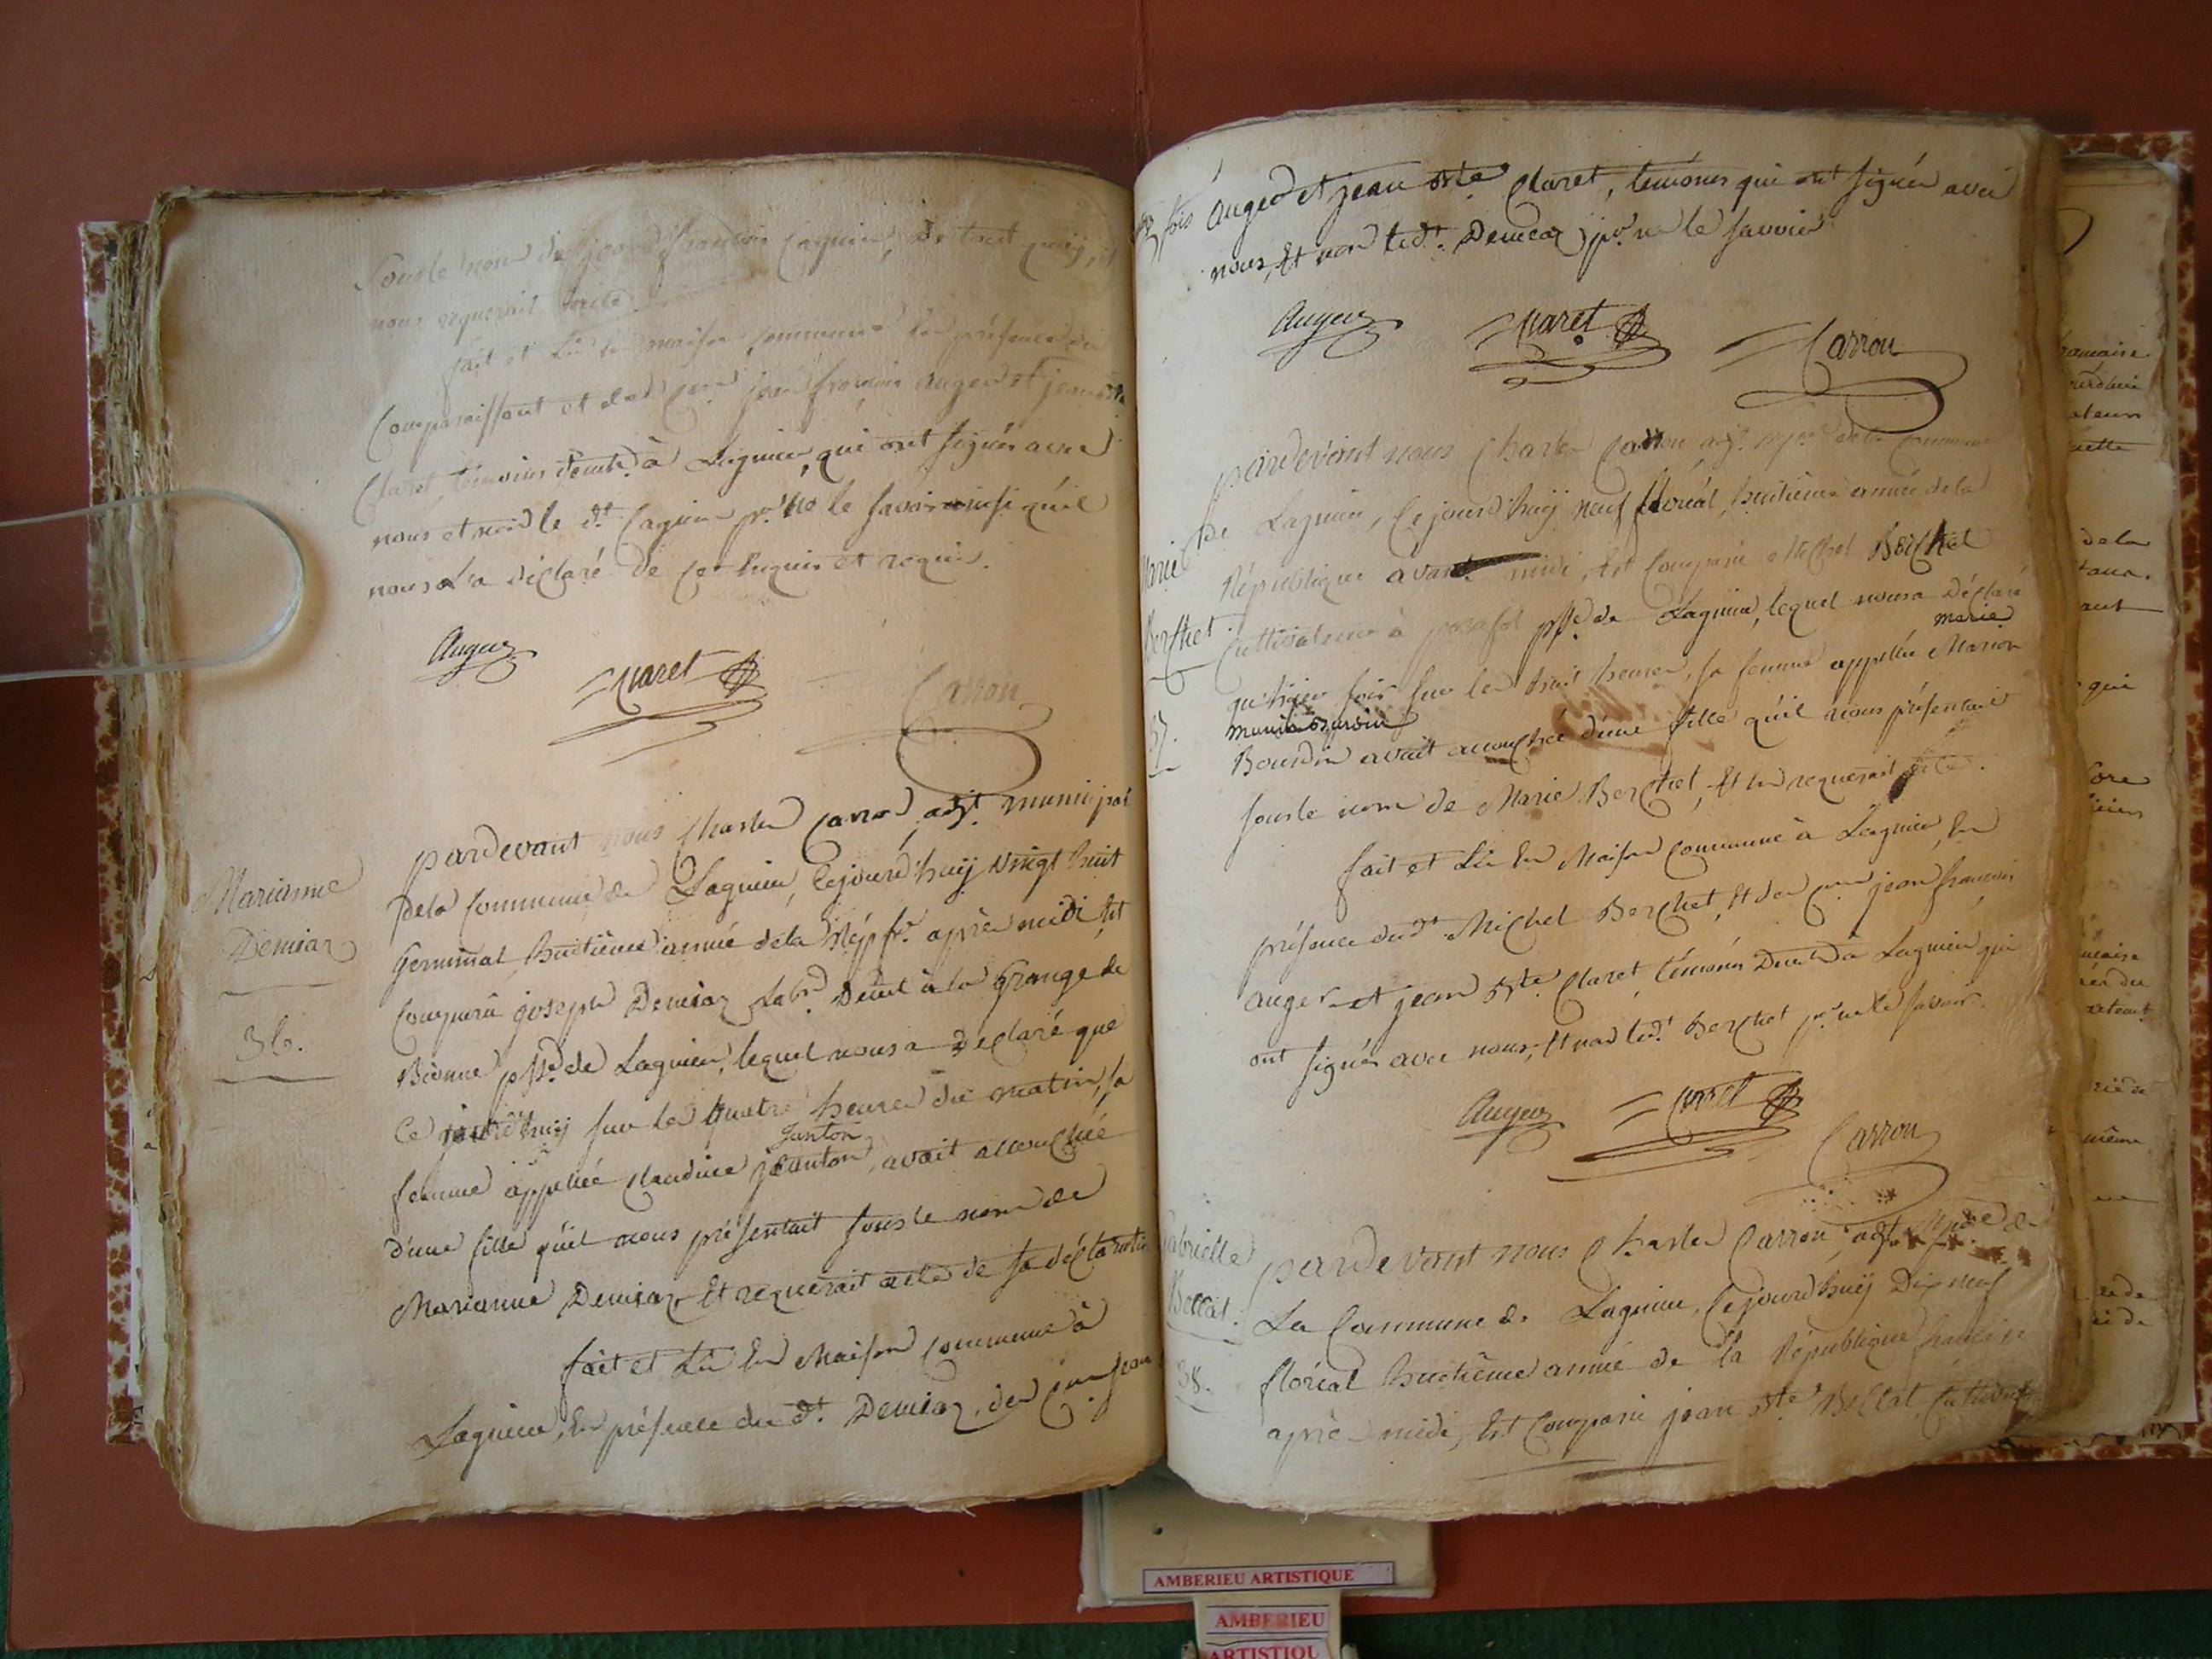 Sous le nom de jean françois Cagnin, De tout quoy, il
nous requerait acte
fait et Lu en maison commune en présence du
Comparaissant et des cyens jean françois auger et jean Bte
Claret, témoins demts à Lagnieu, qui ont signés avec
nous et non le dt Cagnin pr ne le savoir ainsi qu'il
nous l'a déclaré de ce enquis et requis.
Auger
Claret
Carron
Marianne
Demiaz
36.
pardevant nous Charles Carron adjt municipal
de la Commune de Lagnieu, Cejourd'huÿ vingt huit
Germinal huitième année de la Rép. fr. après midi, Est
Comparu joseph Demiaz Labr. Demt à la Grange de
Bionne psse de Lagnieu, lequel nous a déclaré que
Ce jourd'huÿ sur les quatre heures du matin, sa
Janton
femme appellée Claudine jeanton, avait accouchée
d'une fille qu'il nous présentait sous le nom de
Marianne Demiaz Et requerait acte de sa déclaration
fait et Lu En Maison commune à
Lagnieu, En présence du dt. Demiaz, des cyens jean
fois Auger et jean Bte Claret, témoins qui ont signés avec
nous, Et non ledt. Demiaz pr ne le savoir
Auger
Claret
Carron
Marie
Berchet
37.
pardevant nous Charles Carron adjt. mpal de la Commune
de Lagnieu, Cejourd'huÿ neuf floréal, huitième année de la
République avant midi, Est Comparu Michel Berchet
Cultivateur à psse de Lagnieu, lequel nous a déclaré
marie
qu'hier soir sur les huit heures, sa femme appellée Marion
Bourdin avait accouchée d'une fille qu'il nous présentait
sous le nom de Marie Berchet, Et en requerait acte.
fait et Lu En Maison commune à Lagnieu, En
présence dudt. Michel Berchet, Et des cyens jean françois
auger et jean Bte Claret, témoins Demts à Lagnieu qui
ont signés avec nous, Et non ledt. Berchet pr ne le savoir.
Auger
Claret
Carron
Gabrielle
Bollat.
38.
pardevant nous Charles Carron, adjt. mpal de
La Commune de Lagnieu, Cejourd'huÿ Dix neuf
floréal huitième année de la République française
après midi, Est Comparu jean Bte Bollat, Cultivateur
AMBERIEU ARTISTIQUE
AMBERIEU
ARTISTIQU